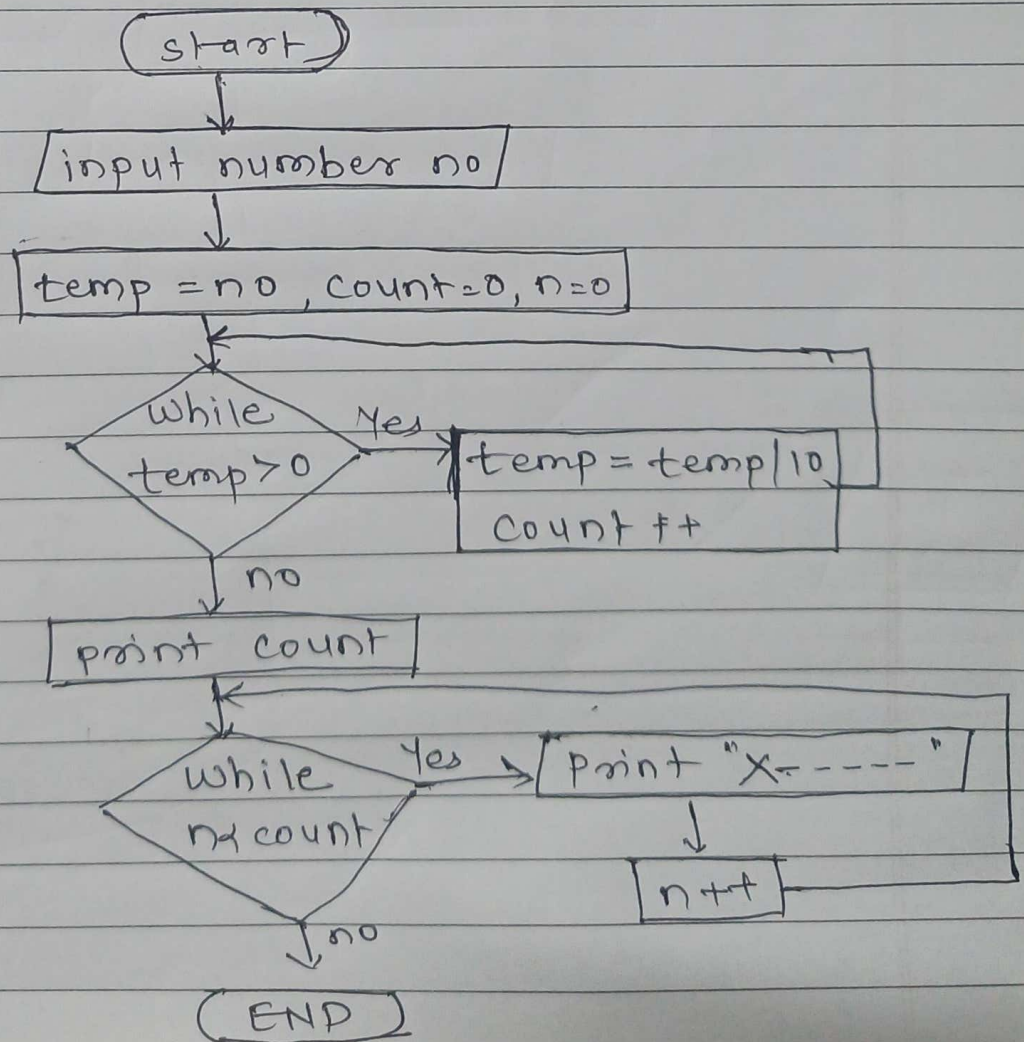 start
input number no
temp = no, count=0, n=0
while
temp>0
Yes
temp = temp/10
count ++
no
print count
while
n< count
Yes
Print "X-----"
n++
no
END